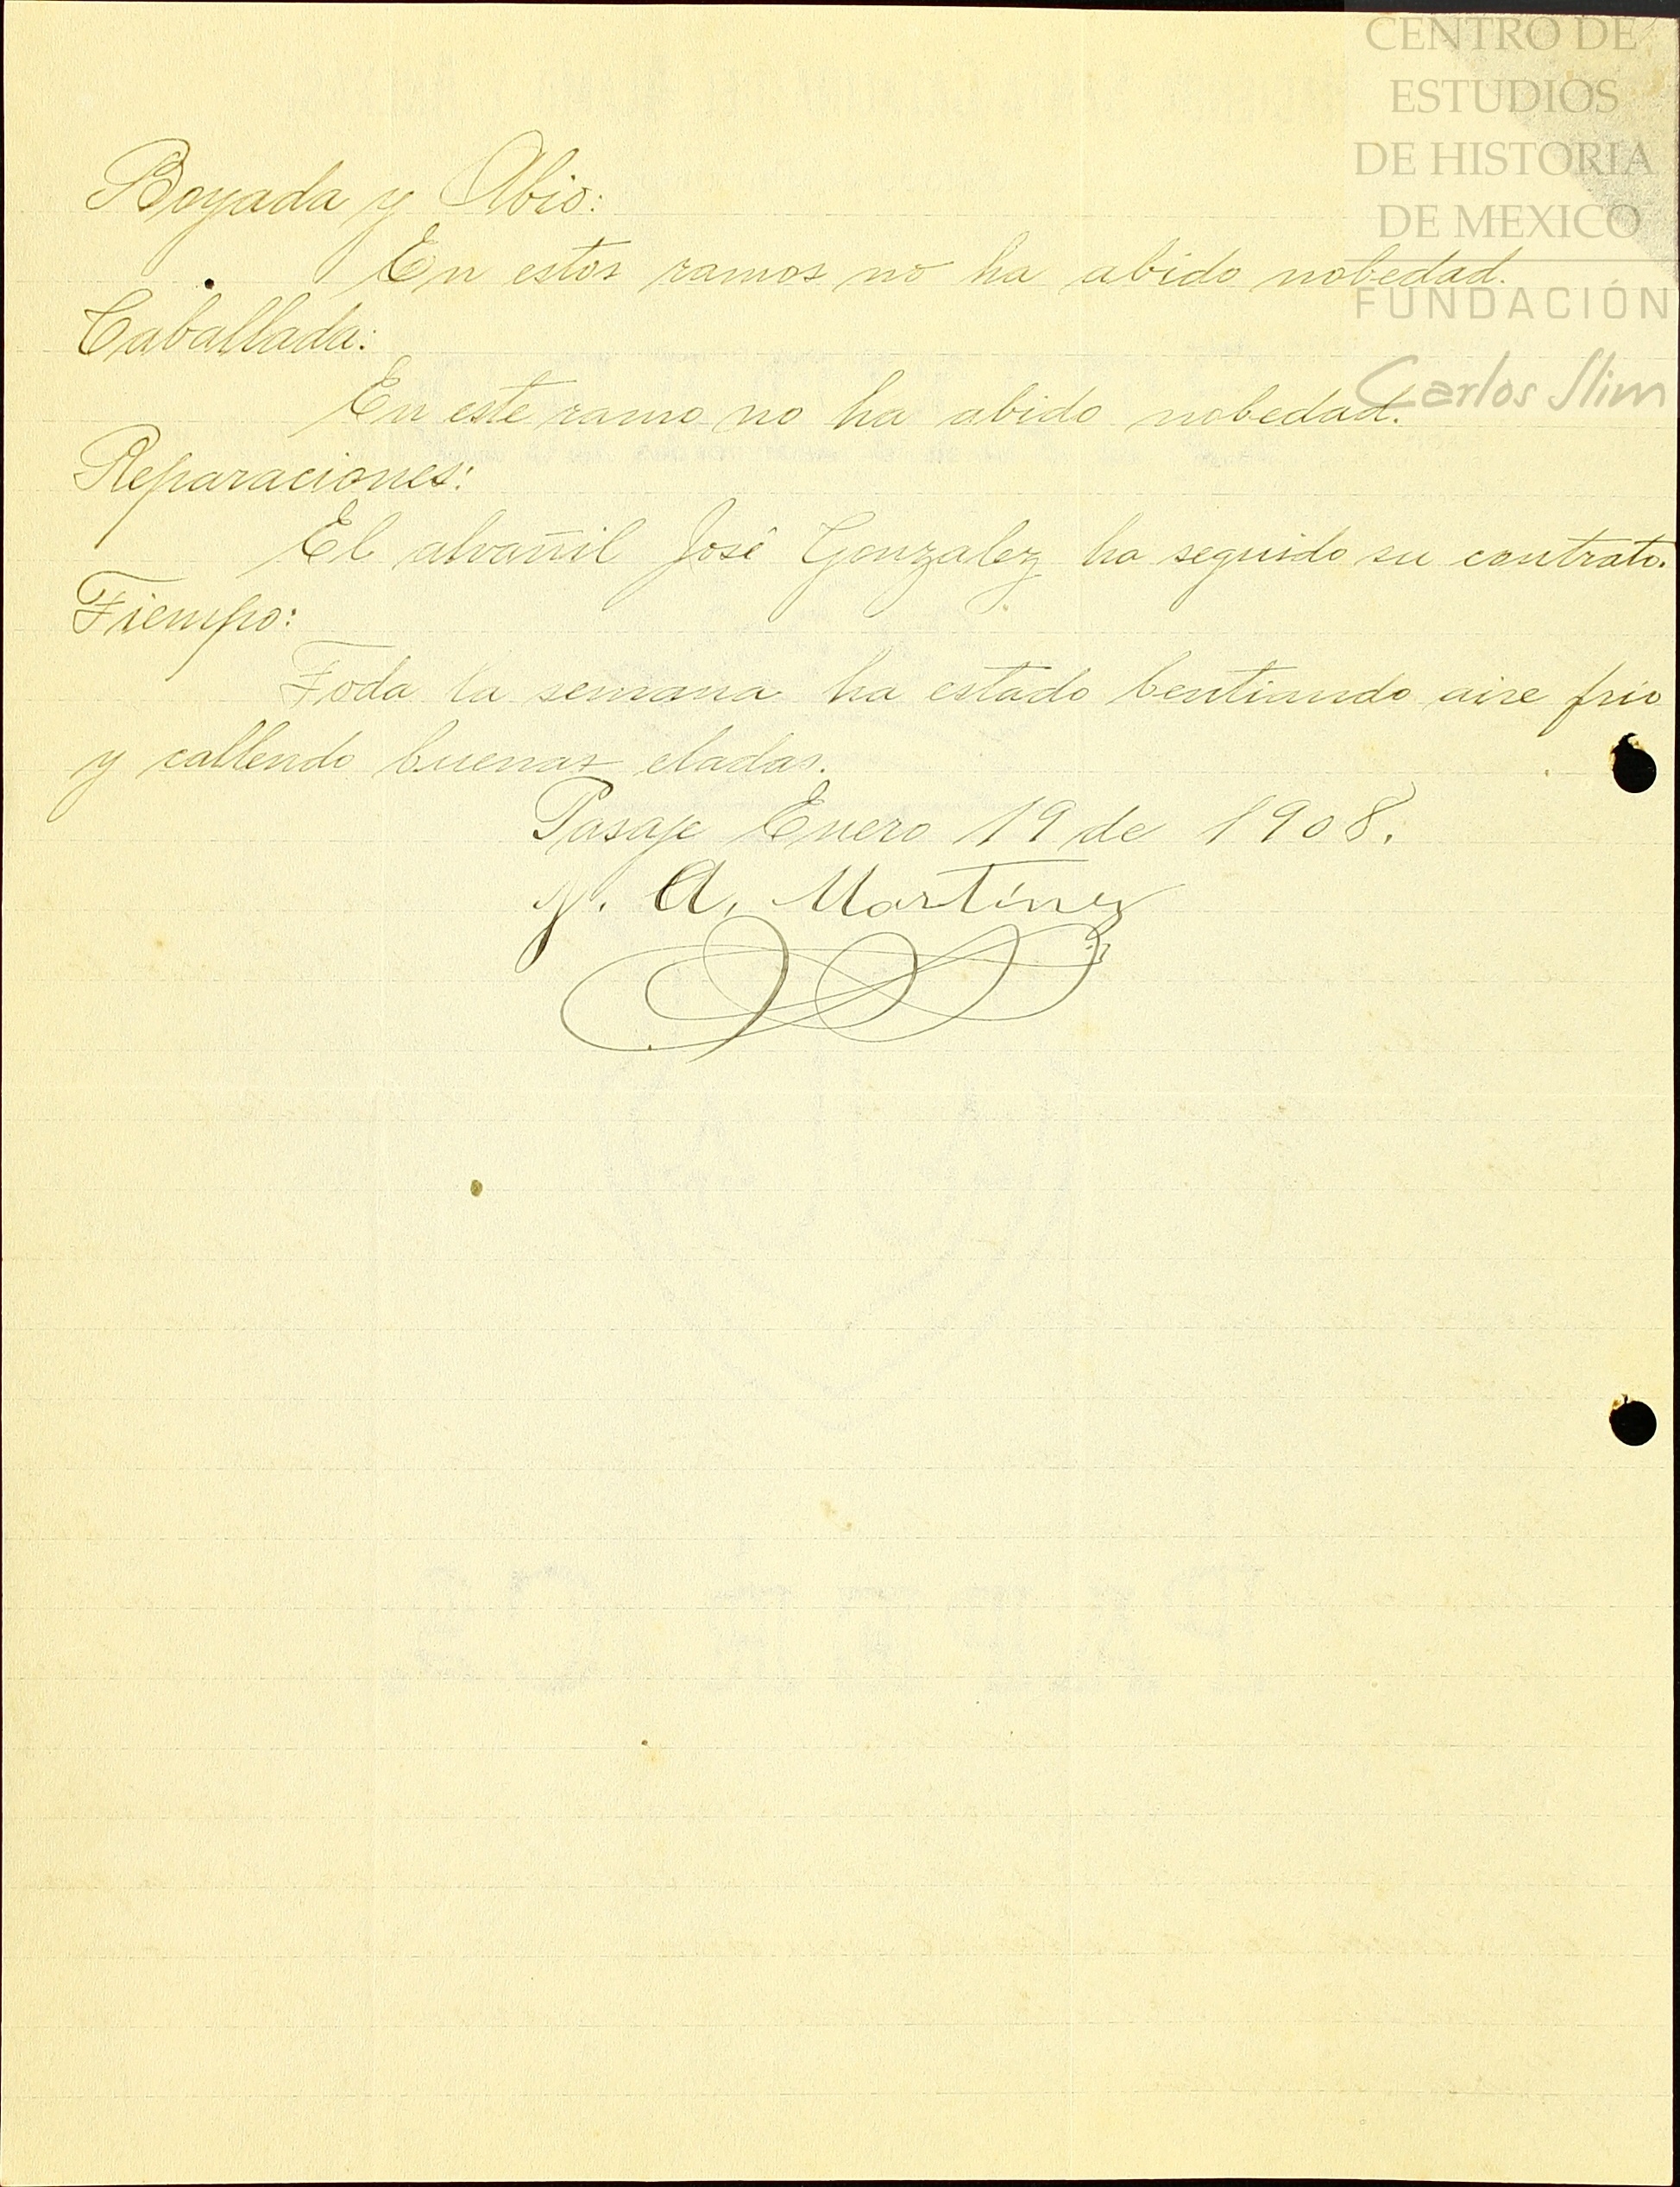 CENTRO DE
ESTUDIOS
DE HISTORIA
DE MEXICO
FUNDACIÓN
Carlos Slim
Boyada y Abio:
En estos ramos no ha abido nobedad.
Caballada:
En este ramo no ha abido nobedad.
Reparaciones:
El alvañil José Gonzalez ha seguido su contrato.
Tiempo:
Toda la semana ha estado bentiando aire frio
y callendo buenas eladas.
Pasaje Enero 19 de 1908.
A. Martínez